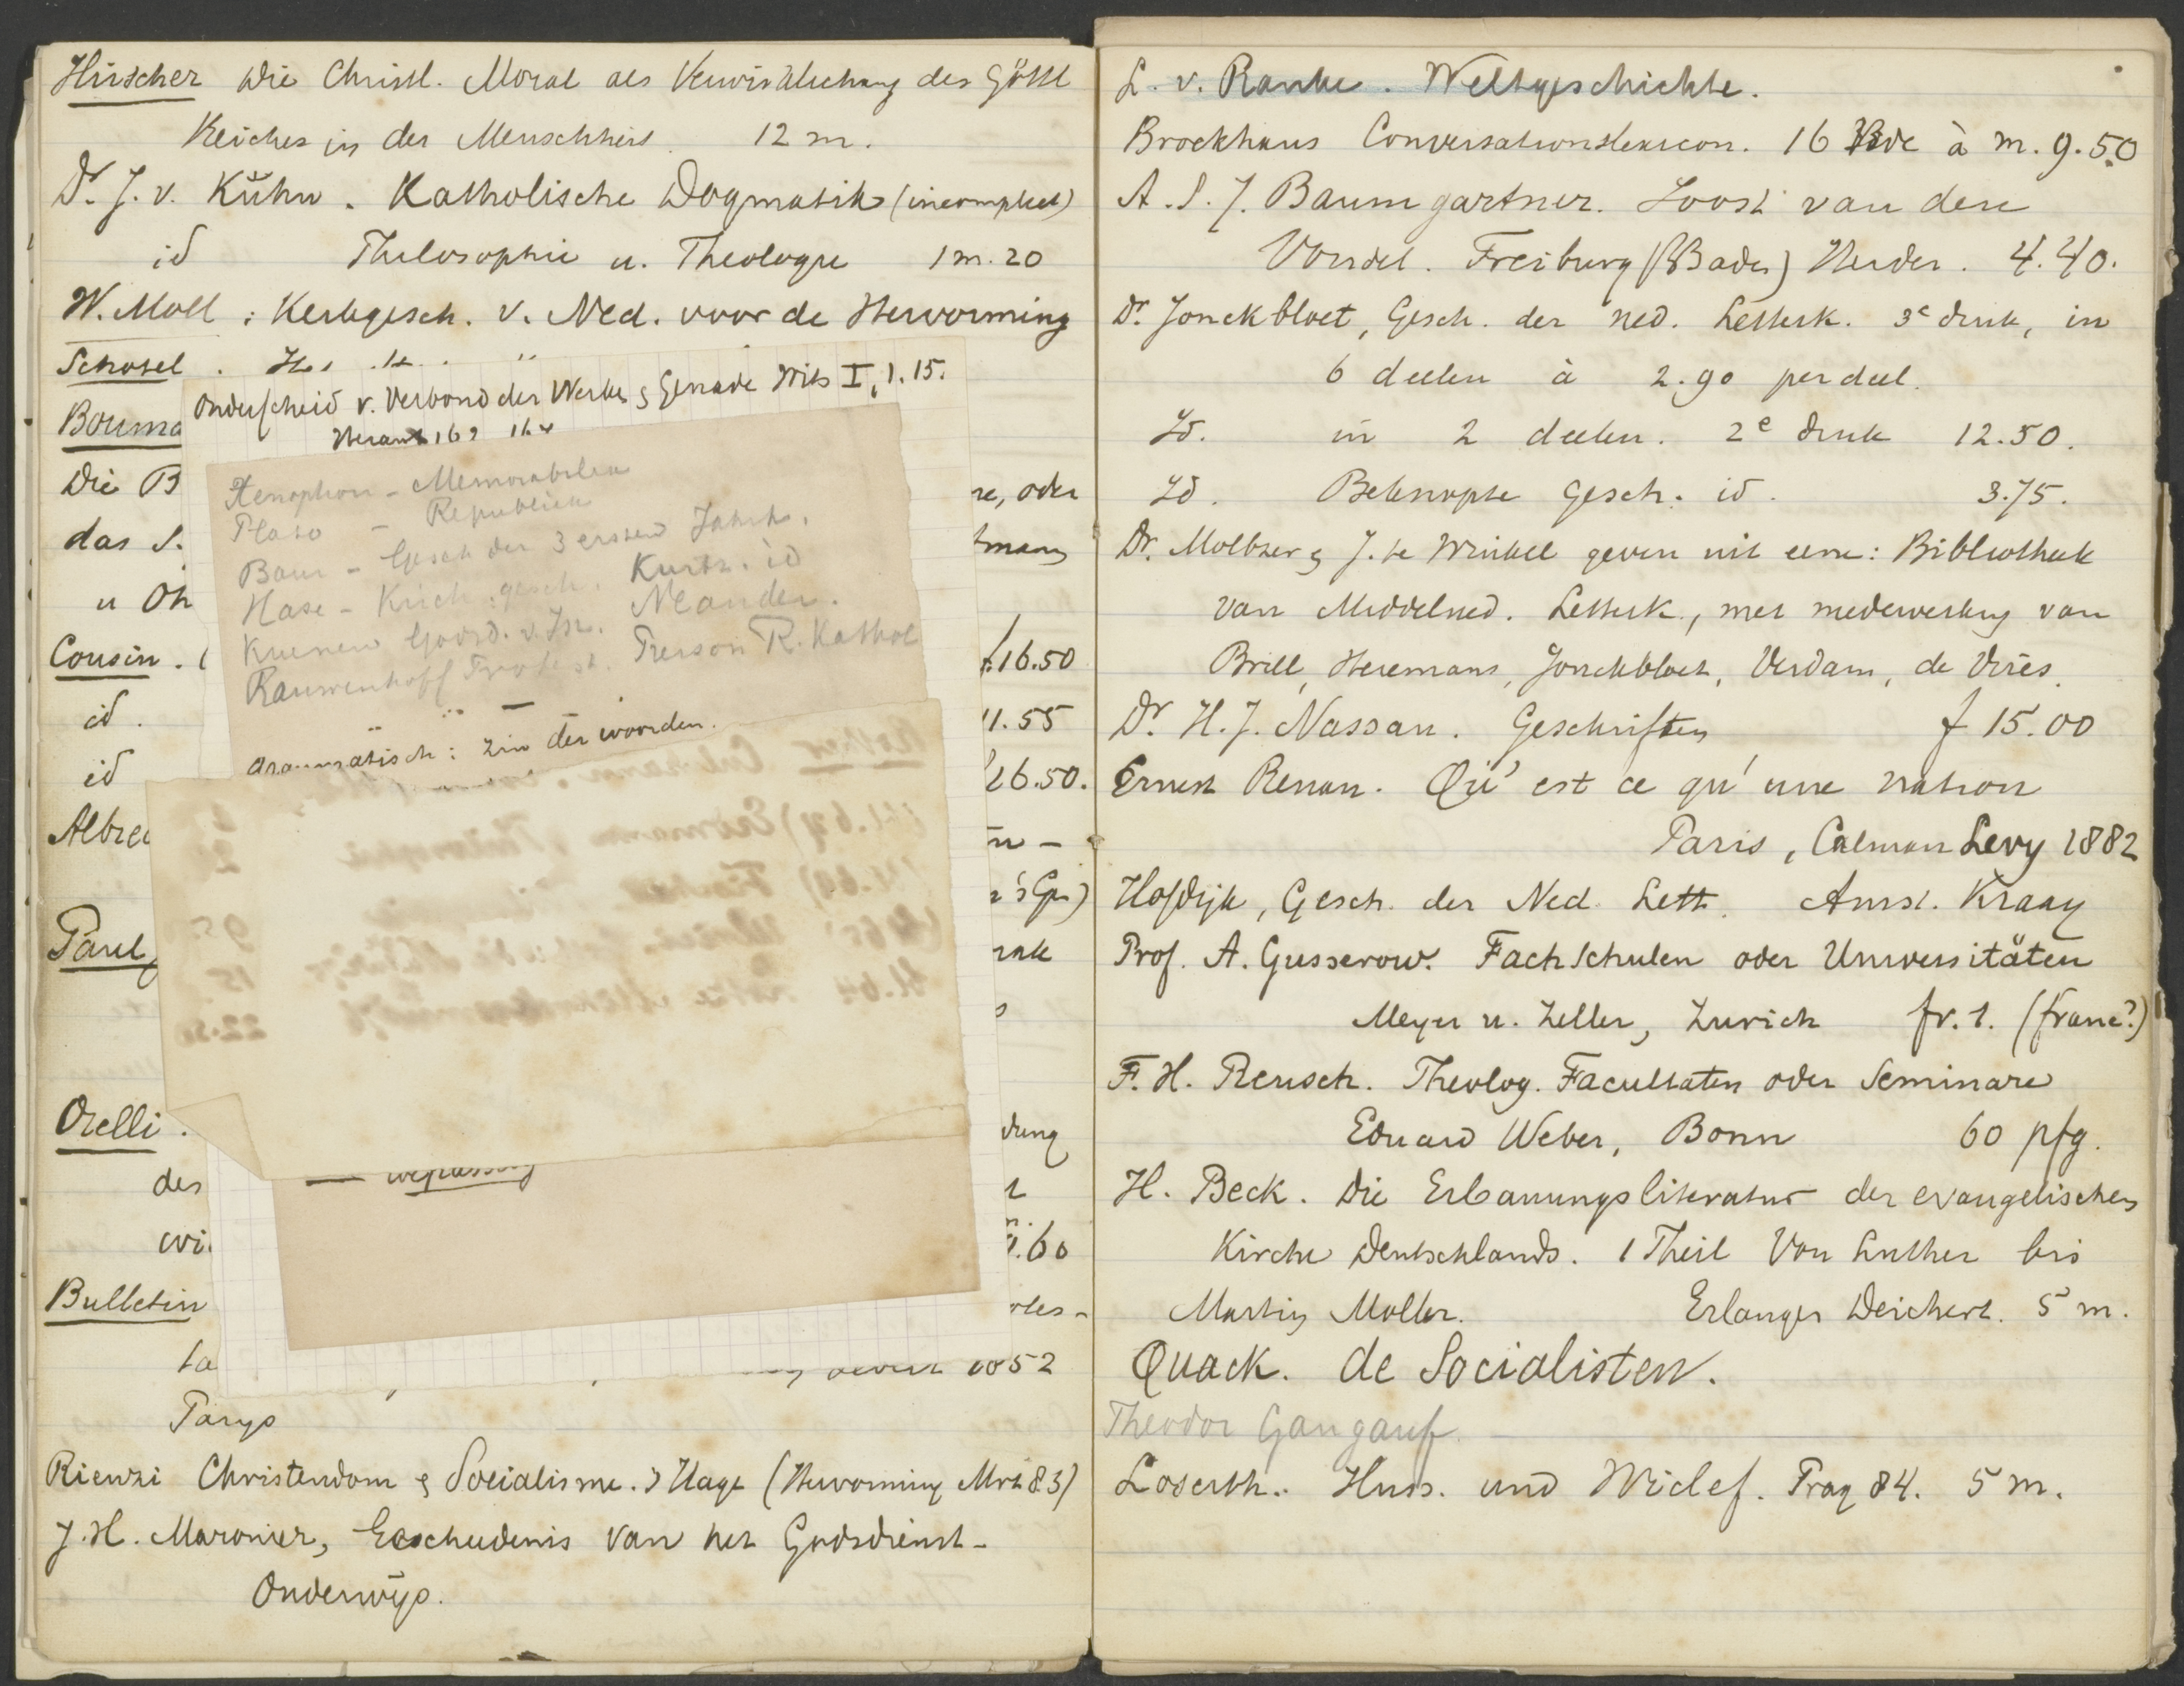 Hirscher Die Christl. Moral als Verwirklichung des Göttl
Reiches in der Menschheit 12 m.
Dr. J. v. Kühn. Katholische Dogmatik (incompleet)
id Philosophie u. Theologie 1 m. 20
W. Moll: Kerkgesch. v. Ned. voor de Hervorming
Schotel.
Onderscheid v. Verbond der Werken & Genade Wits I, 1. 15.
Heraut 162
Xenophon - Memorabilien
Plato - Republiek
Baur - Gesch der 3 ersten Jahrh.
Hase - Kirch. gesch. Kurtz. id
Kuenen Godsd. v. Isr. Neander.
Rauwenhoff Protest. Pierson R. Kathol
grammatisch: zin der woorden.
Bouma
Die B
re, oder
das S.
tmann
u Oh
Cousin. (
f 16.50
id.
11.55
id
26.50.
Albrec
n -
's Gr)
Paul,
Orelli.
dung
des
wi
.60
Bulletin
oles-
ta
1852
Parys
Rienzi Christendom & Socialisme. 's Hage (Hervorming Mrt 83)
J. H. Maronier, Geschiedenis van het Godsdienst-
Onderwijs.
L. v. Ranke. Weltgeschichte.
Brockhaus Conversationslexicon. 16 Bde à m. 9.50
A. S. J. Baumgartner. Joost van den
Vondel. Freiburg (Baden) Herder. 4.40.
Dr. Jonckbloet, Gesch. der Ned. Letterk. 3e druk, in
6 deelen à 2.90 per deel.
Id. in 2 deelen. 2e druk 12.50.
Id. Beknopte Gesch. id. 3.75.
Dr. Moltzer & J. te Winkel geven uit eene: Bibliotheek
van Middelned. Letterk., met medewerking van
Brill, Heremans, Jonckbloet, Verdam, de Vries.
Dr H. J. Nassau. Geschriften f 15.00
Ernest Renan. Qu' est ce qu' une nation
Paris, Calman Levy 1882
Hofdijk, Gesch. der Ned. Lett. Amst. Kraay
Prof. A. Gusserow. Fachschulen oder Universitäten
Meyer u. Zeller, Zurich fr. 1. (franc?)
F. H. Reusch. Theolog. Facultaten oder Seminare
Eduard Weber, Bonn 60 pfg.
H. Beck. Die Erbauungsliteratur der evangelischen
Kirche Deutschlands. 1 Theil Von Luther bis
Martin Moller. Erlangen Deichert. 5 m.
Quack. de Socialisten.
Theodor Gangauf.
Loserth. Huss. und Wiclef. Prag 84. 5 m.